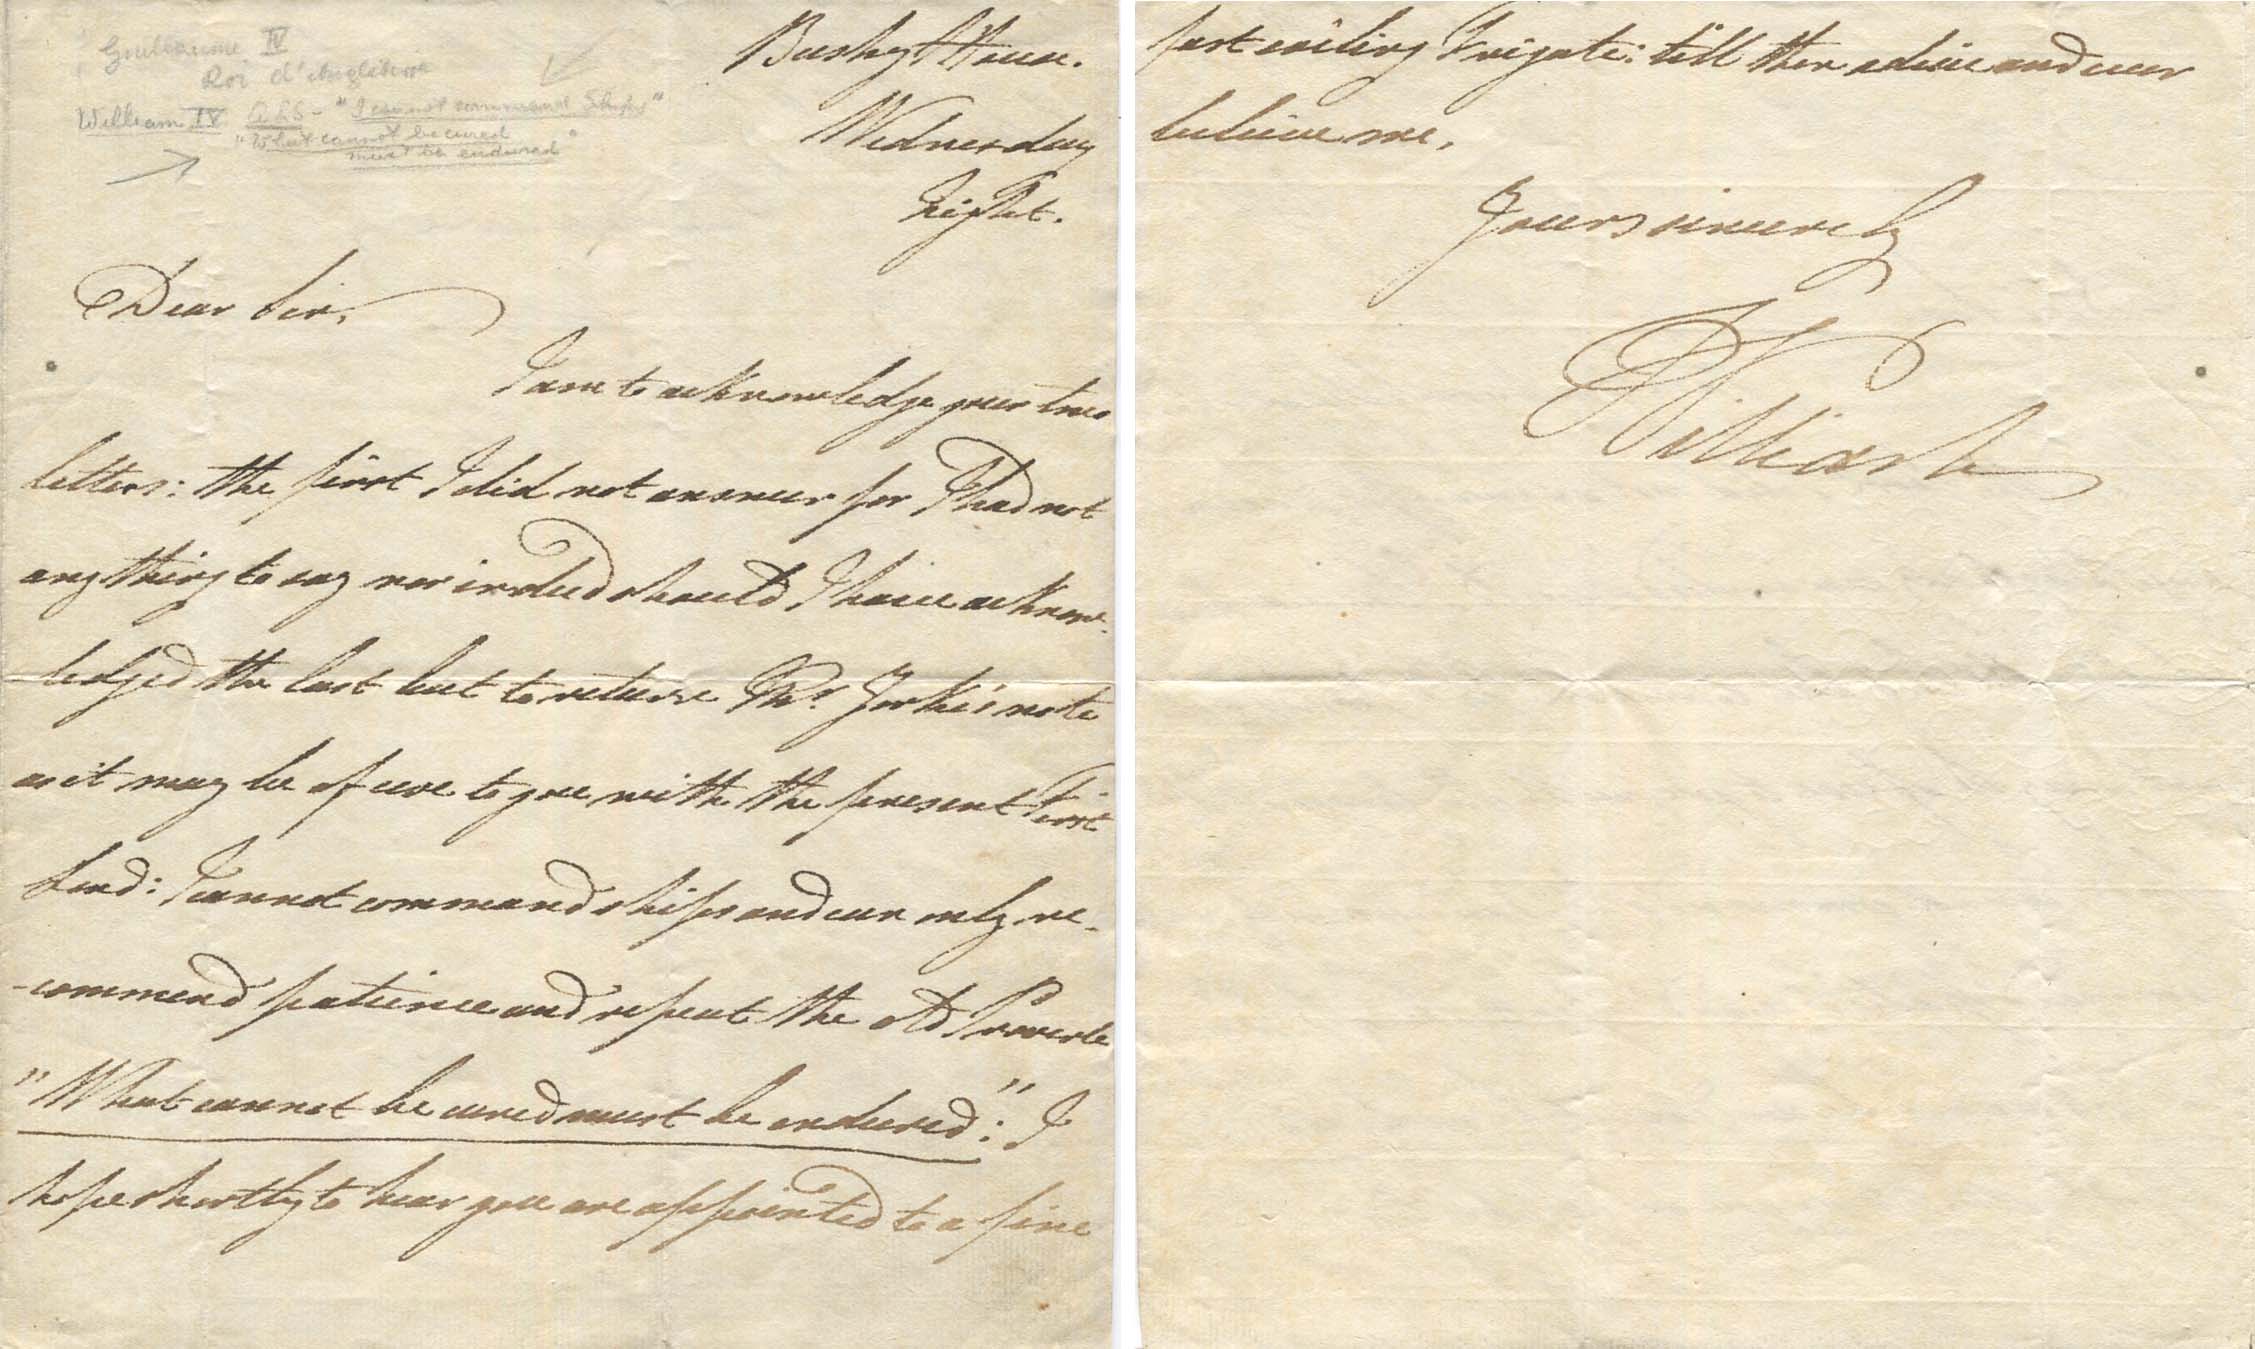 Guillaume IV
Roi d'Angleterre
William IV ALS - "I cannot command Ships"
"What cannot be cured
must be endured"
Bushy House.
Wednesday
Night.
Dear Sir,
I am to acknowledge your two
letters: the first I did not answer for I had not
any thing to say nor indeed should I have acknow-
ledged the last but to return Mr. Yorke's note
as it may be of use to you with the present First
Lord: I cannot command ships and can only re-
-commend patience and repeat the old Proverb
"What cannot be cured must be endured": I
hope shortly to hear you are appointed to a fine
fast sailing Frigate: till then adieu and ever
believe me,
Yours sincerely
William